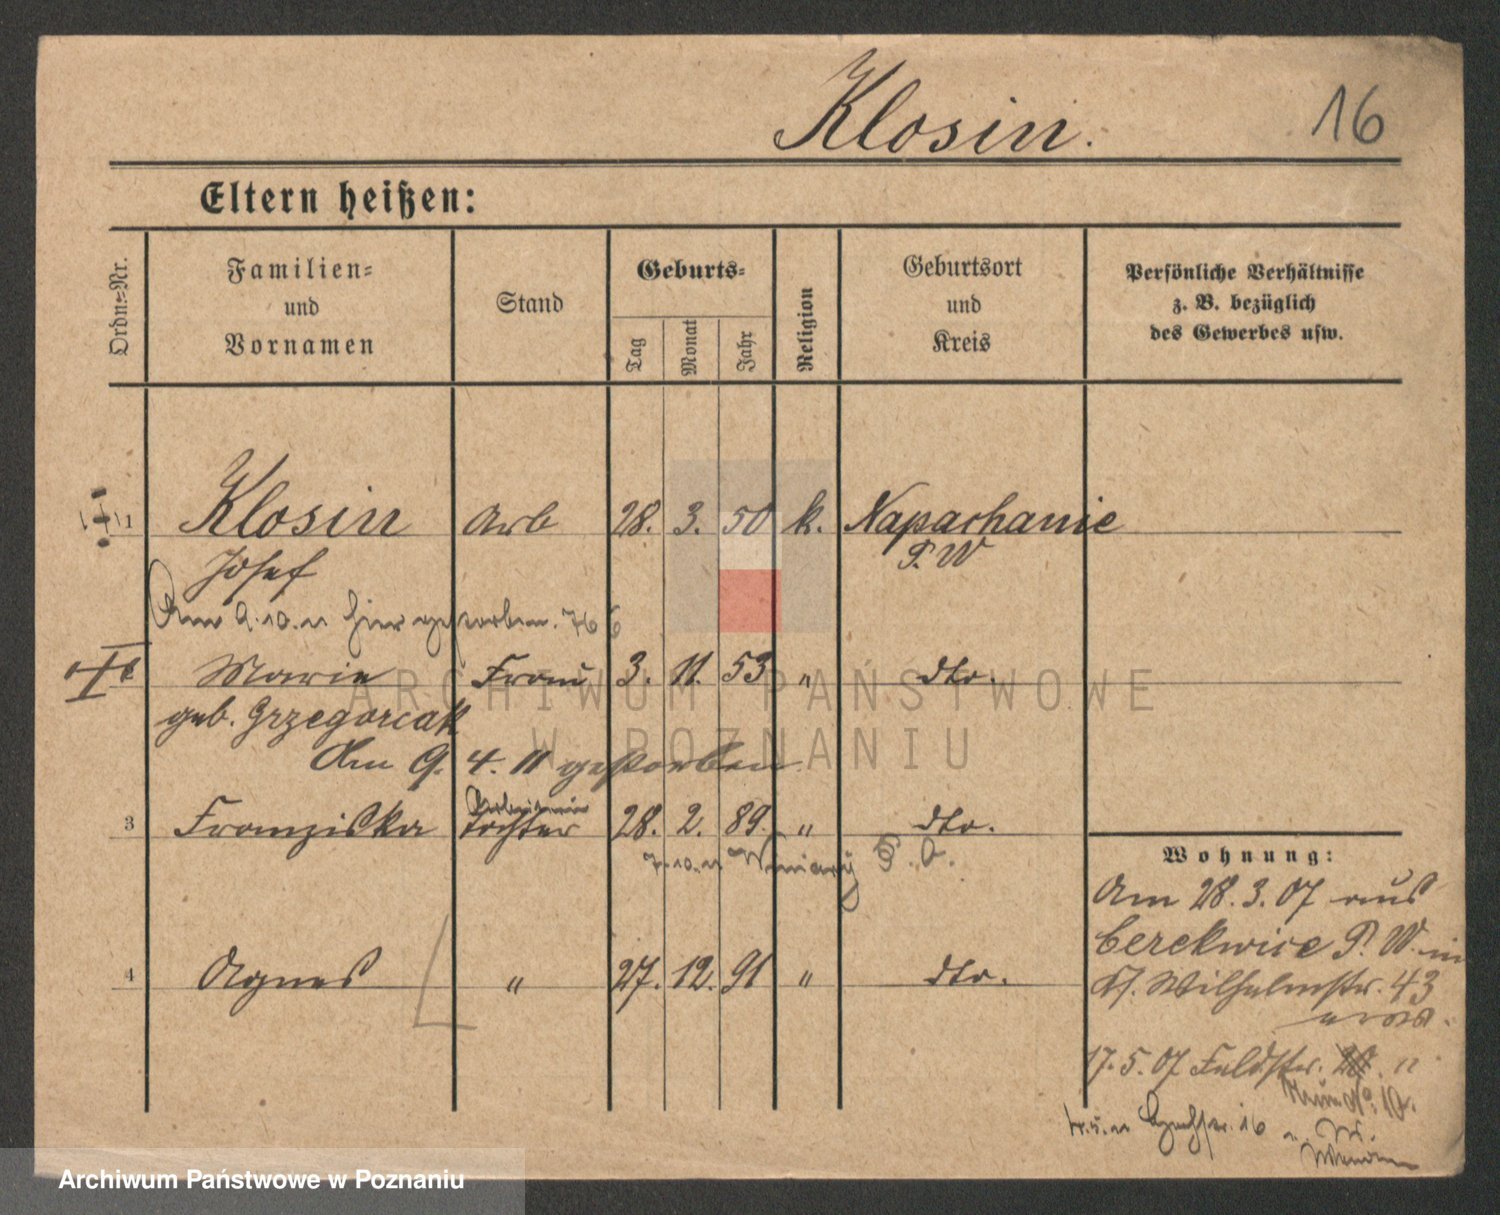 Klosin. 16
Eltern heißen:
Ordn.=Nr. Familien= und Vornamen Stand Geburts= Tag Monat Jahr Religion Geburtsort und Kreis Persönliche Verhältnisse z. B. bezüglich des Gewerbes usw.
1 Klosin Arb 28. 3. 50 k. Napachanie
Josef P. W
Am 9.10.11 hier gestorben.
Marie Frau 3. 11. 53 " dto.
geb. Grzegorcak
Am 9. 4. 11 gestorben.
Arbeiterin
3 Franziska Tochter 28. 2. 89. " dto.
7.10.11 Winiary P. O.
4 Agnes " 27. 12. 91 " dto.
Wohnung:
Am 28. 3. 07 aus
Cerekwice P. W. in
Wilhelmstr. 43
17. 5. 07 Feldstr.
16
ARCHIWUM PAŃSTWOWE
W POZNANIU
Archiwum Państwowe w Poznaniu